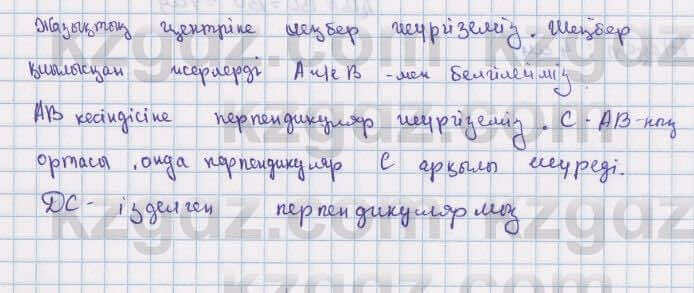 Жазықтың центріне шеңбер жүргіземіз. Шеңбер
қиылысқан жерлерді А және В -мен белгілейміз
АВ кесіндісіне перпендикуляр жүргіземіз. С - АВ-ның
ортасы, онда перпендикуляр С арқылы жүреді.
DC - ізделген перпендикуляр
kzgdz.com